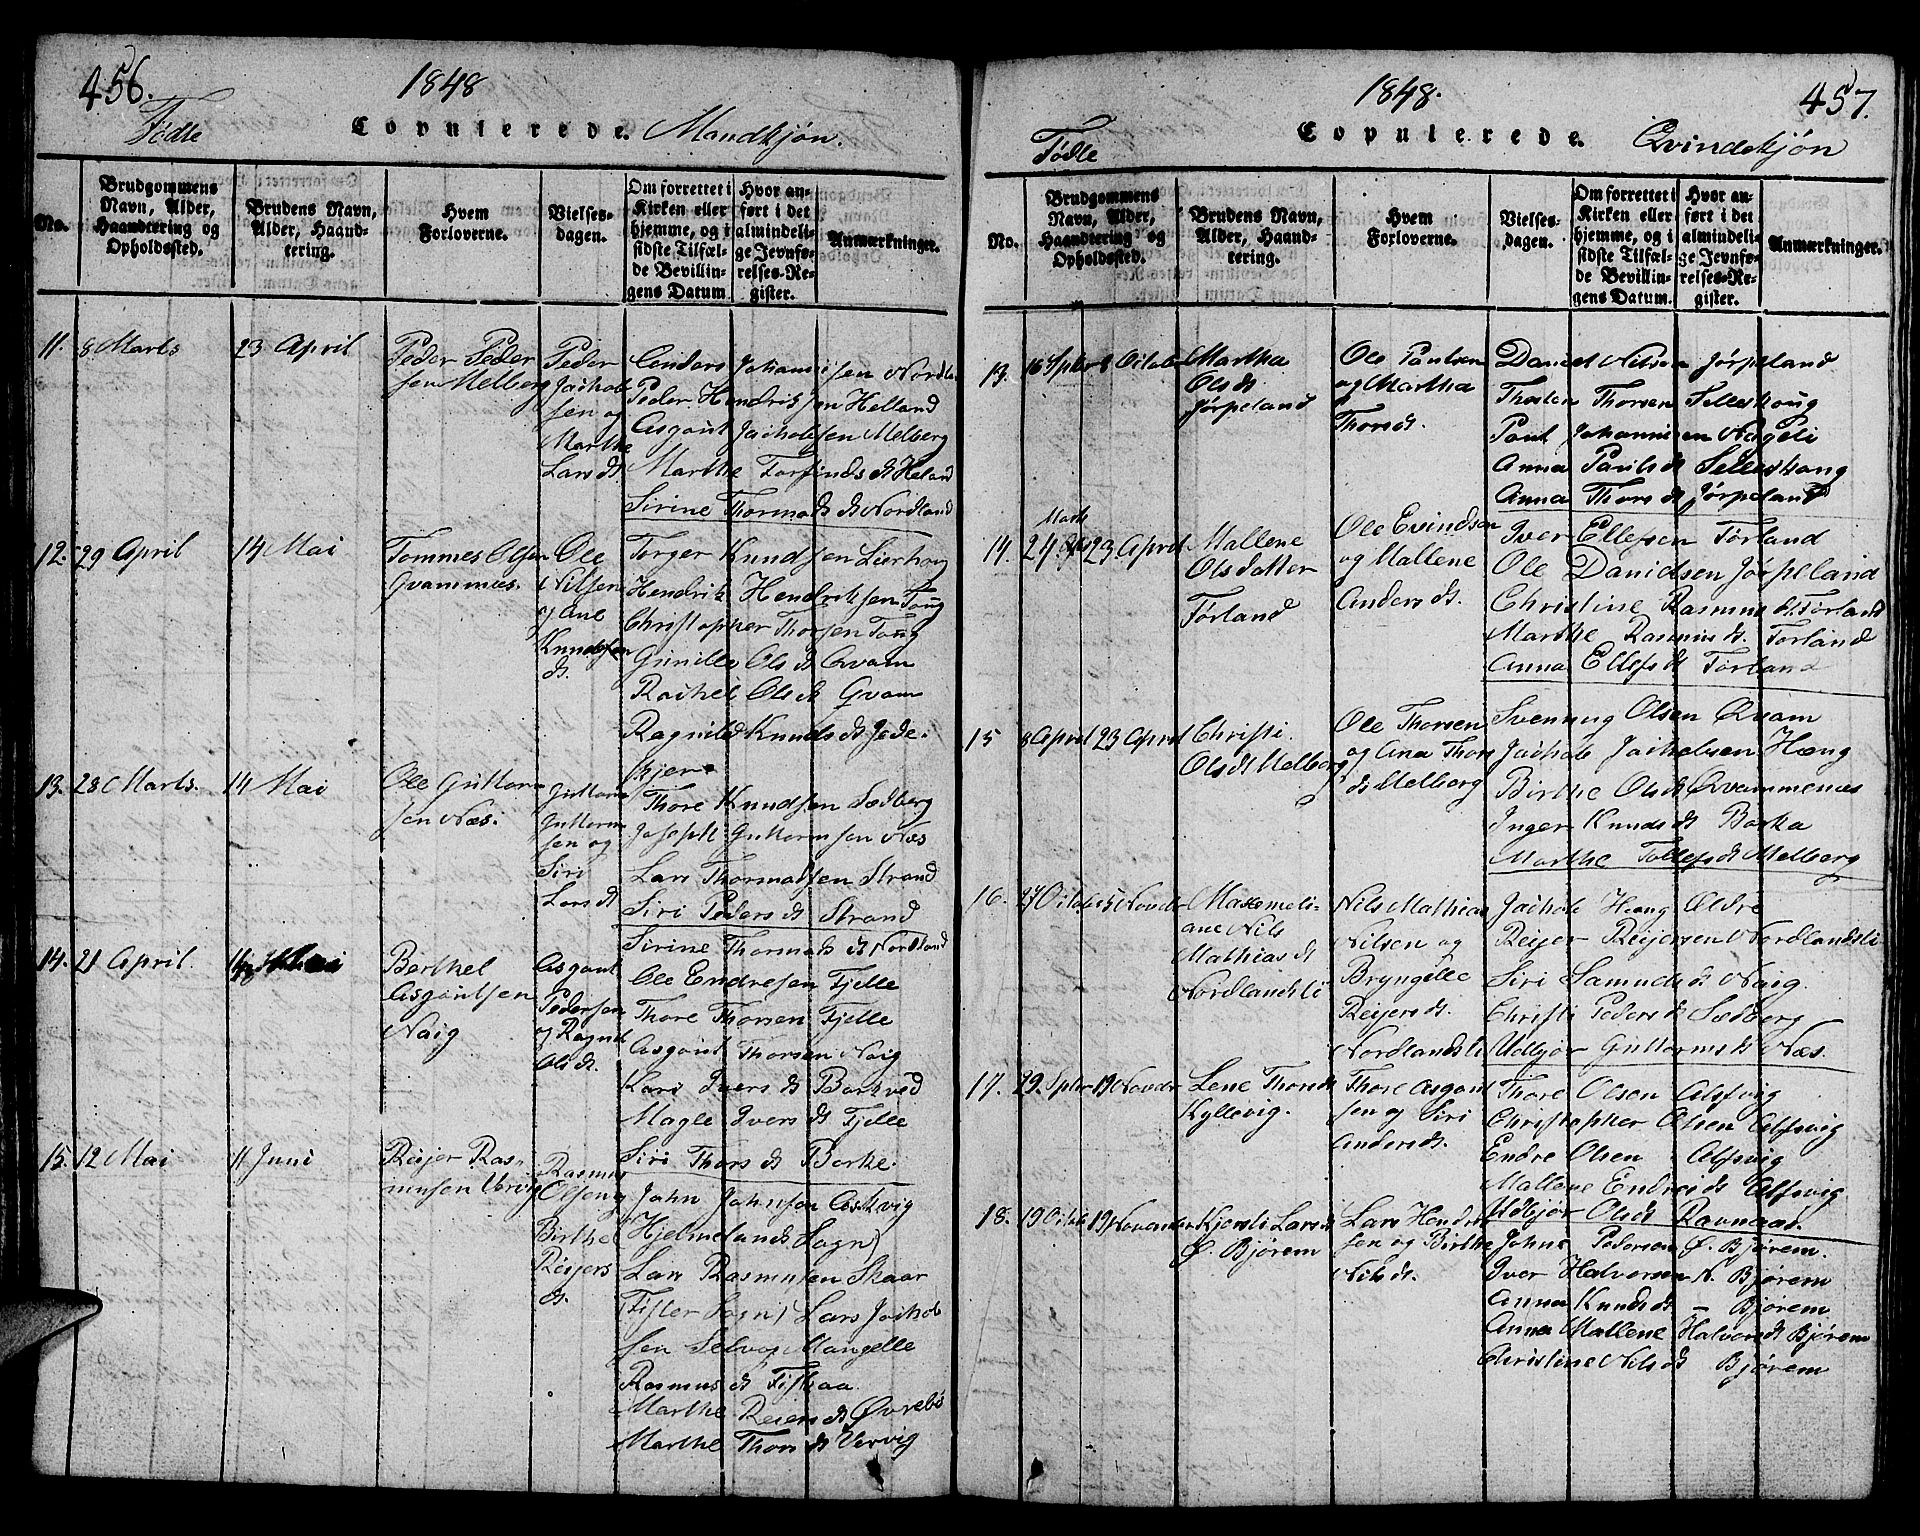 456.
1848
Fødte
Copulerede.
Mandkjøn.
No.
Brudgommens Navn, Alder, Haandtering og Opholdssted.
Brudens Navn, Alder, Haandtering.
Hvem Forloverne.
Vielsesdagen.
Om forrettet i Kirken eller hjemme, og i sidste Tilfælde Bevillingens Datum.
Hvor anført i det almindelige Jevnførelses-Register.
Anmærkninger.
11.
8 Marts
23 April
Peder Peder
sen Melberg
Peder
Jachob
sen og
Marthe
Larsdt
Anders Johannesen Nordla
Peder Hendriksen Helland
Asgout Jachobsen Melberg
Marthe Torfindsdt Heland
Sirine Thormodsdt Nordland
12.
29 April
14 Mai
Tommes Olsen
Qvammnes.
Ole
Nilsen
og Ane
Knudsen
dt.
Torger Knudsen Lierhoug
Hendrik Hendriksen Toug
Christopher Thorsen Toug
Gunille Olsdt Qvam
Rachel Olsdt Qvam
Ragnild Knudsdt Jede
kjer
13.
28 Marts.
14 Mai
Ole Guttorm
sen Næs.
Guttorm
Guttorm
sen og
Siri
Larsdt
Thore Knudsen Sædberg
Joseph Guttormsen Næs
Lars Thormodsen Strand
Siri Pedersdt Strand
Sirine Thormodsdt Nordland
14.
21 April.
Berthel
Asgoutsen
Naig
Asgout
Pedersen
og Ragnil
Olsdt.
Ole Endresen Fjelle
Thore Thorsen Fjelle
Asgout Thorsen Naig
Kari Iversdt Barkved
Magle Iversdt Fjelle
Siri Thorsdt Barke.
15.
12 Mai
11 Juni
Reijer Ras-
musen Vervig
Rasmus
Olsen og
Birthe
Reijers
dt.
John Johnsen Askvig
(Hjelmelands Sogn)
Lars Rasmusen Skaar
(Fister Sogn) Lars Jachob
sen Selvog Mangelle
Rasmusdt Fiskaa.
Marthe Reiersdt Øvrebø
Marthe Thorsdt Vervig
1848.
457.
Fødte
Copulerede.
Qvindekjøn
No.
Brudgommens Navn, Alder, Haandtering og Opholdssted.
Brudens Navn, Alder, Haandtering.
Hvem Forloverne.
Vielsesdagen.
Om forrettet i Kirken eller hjemme, og i sidste Tilfælde Bevillingens Datum.
Hvor anført i det almindelige Jevnførelses-Register.
Anmærkninger.
13.
16 Spter
8 Octob
Martha
Olsdt.
Jørpeland
Ole Paulsen
og Martha
Thorsdt.
Daniel Nilsen Jørpeland
Thosten Thorsen Selleskoug
Paul Johannesen Nageli
Anna Paulsdt Selleskoug
Anna Thorsdt Jørpeland
14.
Marts
24
23 April
Mallene
Olsdatter
Førland
Ole Evindsen
og Mallene
Andersdt.
Iver Ellefsen Førland
Ole Danidsen Jørpeland
Christine Rasmusdt Førland
Marthe Rasmusdt. Førland
Anna Ellefsdt Førland
15
8 April
23 April
Christi
Olsdt Melberg
Ole Thorsen
og Ana Thors
dt Melberg
Svennug Olsen Qvam
Jachob Jachobsen Hæng
Birthe Olsdt Qvammenæs
Inger Knudsdt Barka
Marthe Tollefsdt Melberg
16.
27 Octob
5 Novder
Maxemeli-
ane Nils
Mathiasdt
Nordlandsli
Nils Mathias
Nilsen og
Bryngelle
Reijersdt.
Nordlandsli
Jachob Hæng Ældre
Reijer Reijersen Nordlandsli
Siri Samuelsdt Naig.
Christi Pedersdt Sædberg
Udbjør Guttormsdt Næs.
17.
29. Spter
19 Novder
Lene Thorsdt
Kyllevig.
Thore Asgout
sen og Siri
Andersdt.
Thore Olsen Alsvig
Christopher Olsen Alfsvig
Endre Olsen Alfsvig
Mallene Endresdt Alfsvig
Udbjør Olsdt Ravnaas.
18.
19 Octob
19 November
Kjersti Larsdt
Ø. Bjørem
Lars Hendrik
sen og Birthe
Nilsdt.
Johns Pedersen Ø. Bjørem.
Iver Halvorsen N. Bjørem
Anna Knudsdt — Bjørem
Anna Mallene Halvorsdt Bjørem
Christine Nilsdt Bjørem